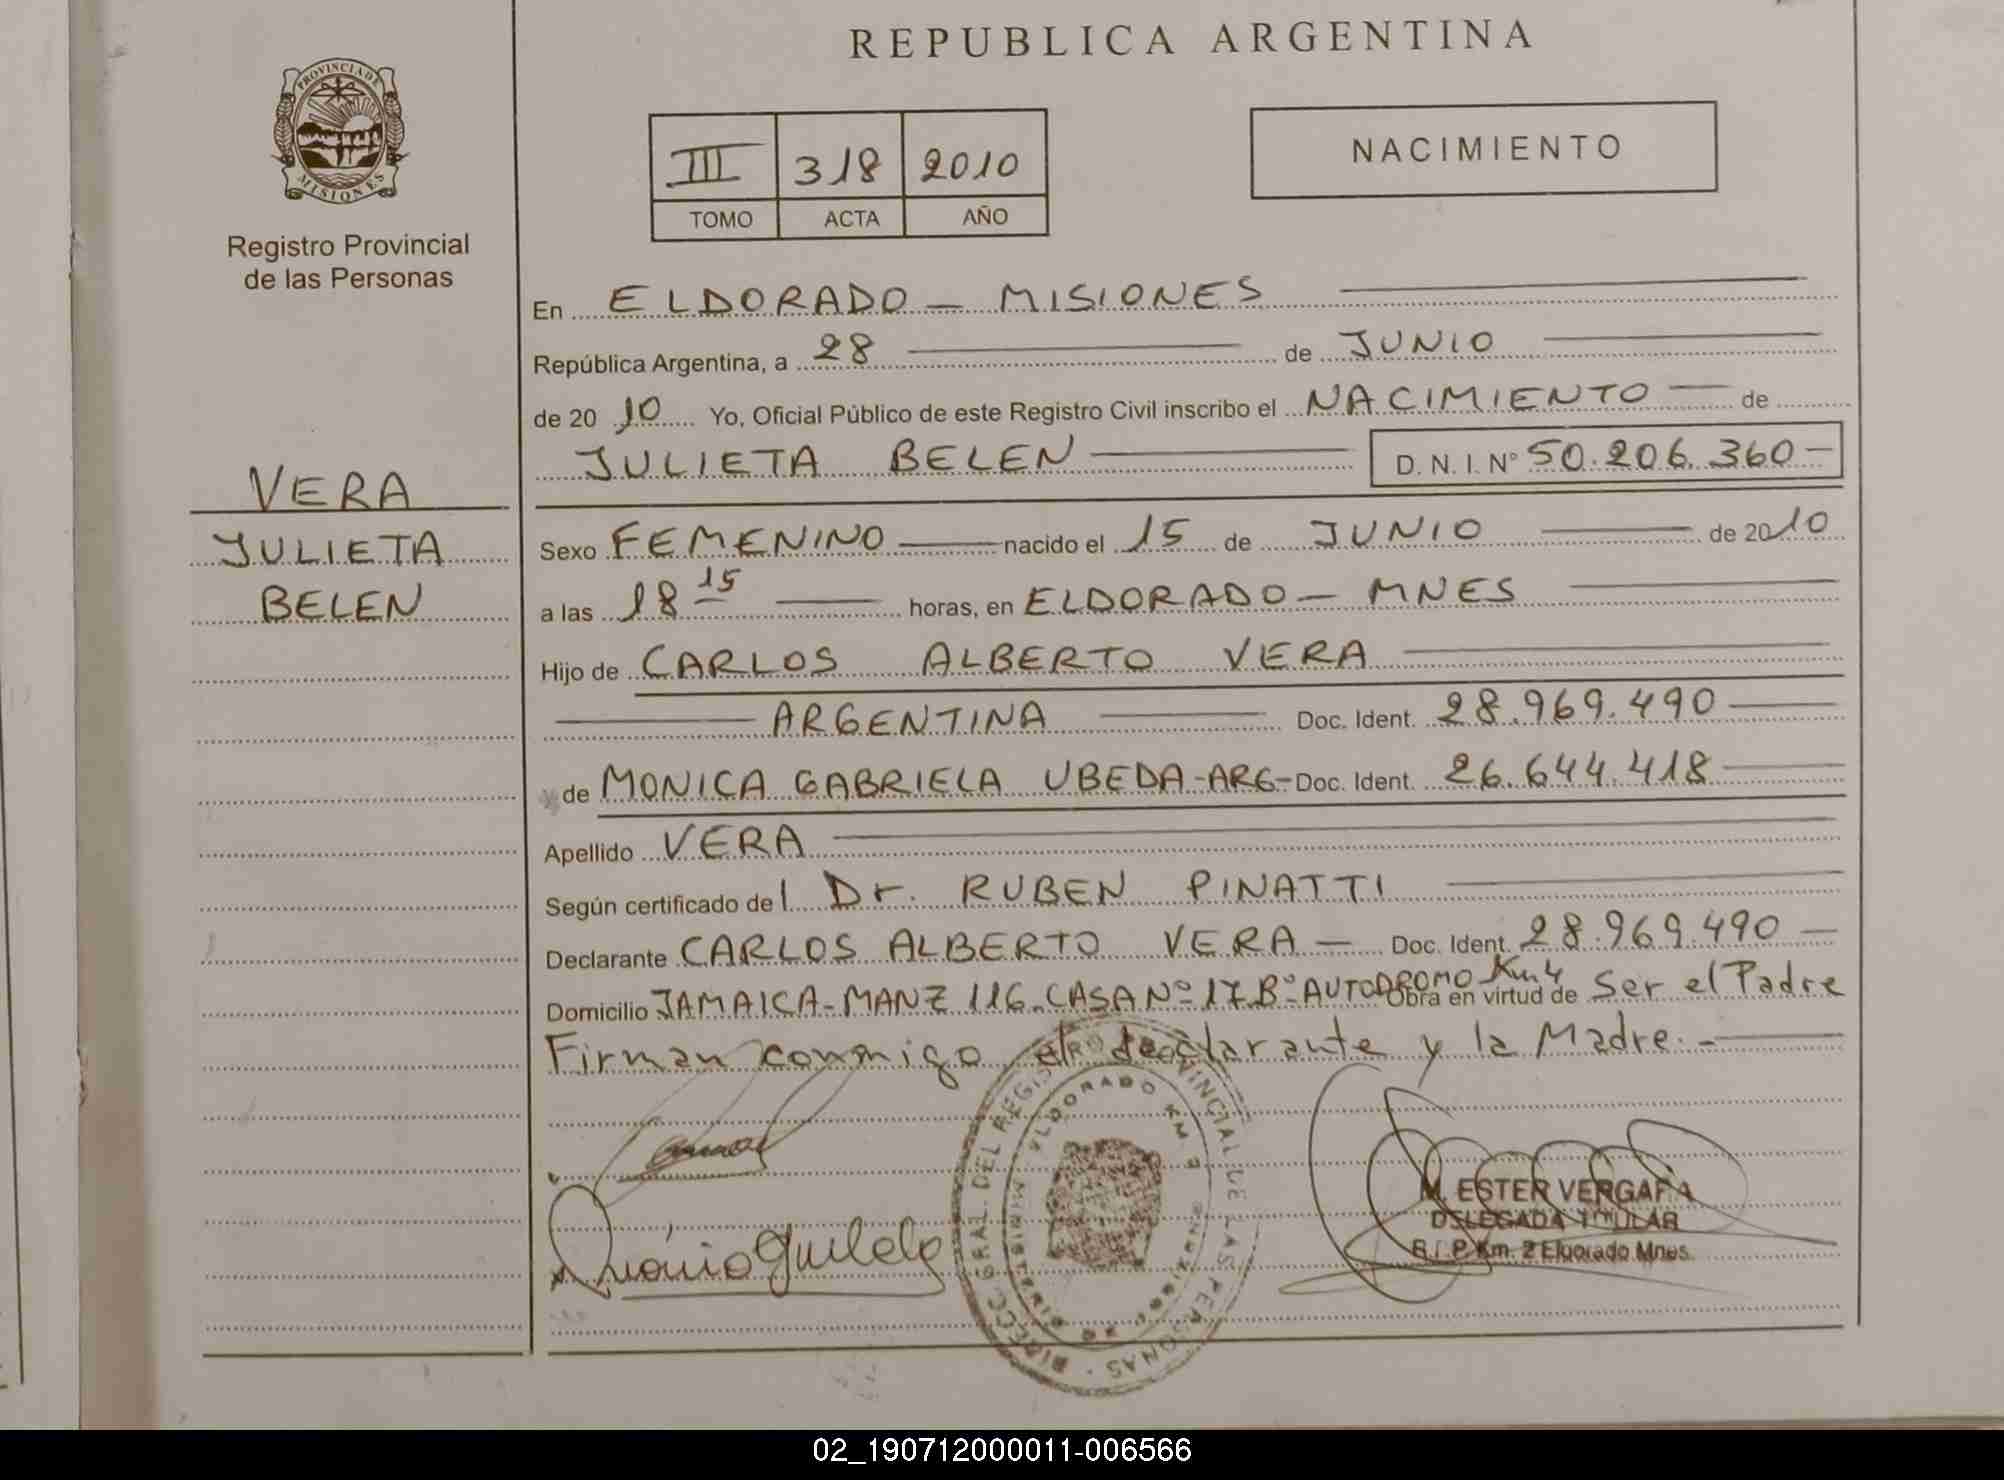 REPUBLICA ARGENTINA
PROVINCIA DE
MISIONES
Registro Provincial
de las Personas
III 318 2010
TOMO ACTA AÑO
NACIMIENTO
VERA
JULIETA
BELEN
En ELDORADO - MISIONES
República Argentina, a 28 de JUNIO
de 2010 Yo, Oficial Público de este Registro Civil inscribo el NACIMIENTO de
JULIETA BELEN D.N.I.Nº 50.206.360
Sexo FEMENINO nacido el 15 de JUNIO de 2010
a las 18 15 horas, en ELDORADO - MNES
Hijo de CARLOS ALBERTO VERA
ARGENTINA Doc. Ident. 28.969.490
de MONICA GABRIELA UBEDA-ARG- Doc. Ident. 26.644.418
Apellido VERA
Según certificado del Dr. RUBEN PINATTI
Declarante CARLOS ALBERTO VERA - Doc. Ident. 28.969.490
Domicilio JAMAICA-MANZ 116-CASA Nº 17 Bº AUTODROMO Km 4 Obra en virtud de Ser el Padre
Firman conmigo el declarante y la Madre.-
M. ESTER VERGARA
DELEGADA TITULAR
R.P. Km. 2 Eldorado Mnes.
02_190712000011-006566